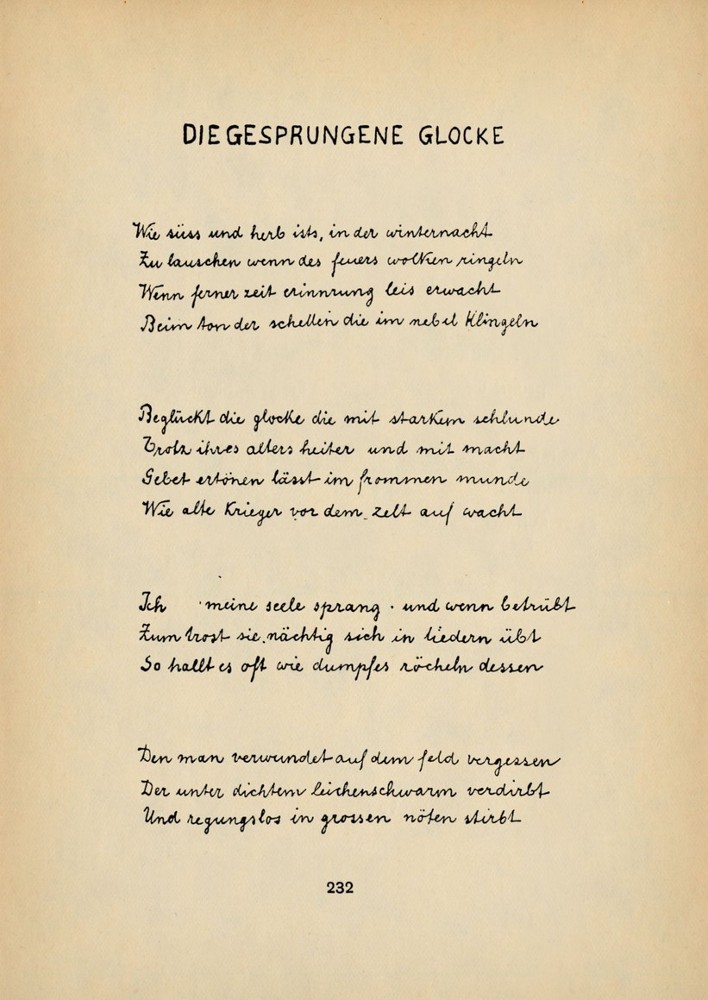 DIE GESPRUNGENE GLOCKE
Wie süss und herb ists, in der winternacht
Zu lauschen wenn des feuers wolken ringeln
Wenn ferner zeit erinnrung leis erwacht
Beim ton der schellen die im nebel klingeln
Beglückt die glocke die mit starkem schlunde
Trotz ihres alters heiter und mit macht
Gebet ertönen lässt im frommen munde
Wie alte Krieger vor dem zelt auf wacht
Ich · meine seele sprang · und wenn betrübt
Zum trost sie nächtig sich in liedern übt
So hallt es oft wie dumpfes röcheln dessen
Den man verwundet auf dem feld vergessen
Der unter dichtem leichenschwarm verdirbt
Und regungslos in grossen nöten stirbt
232